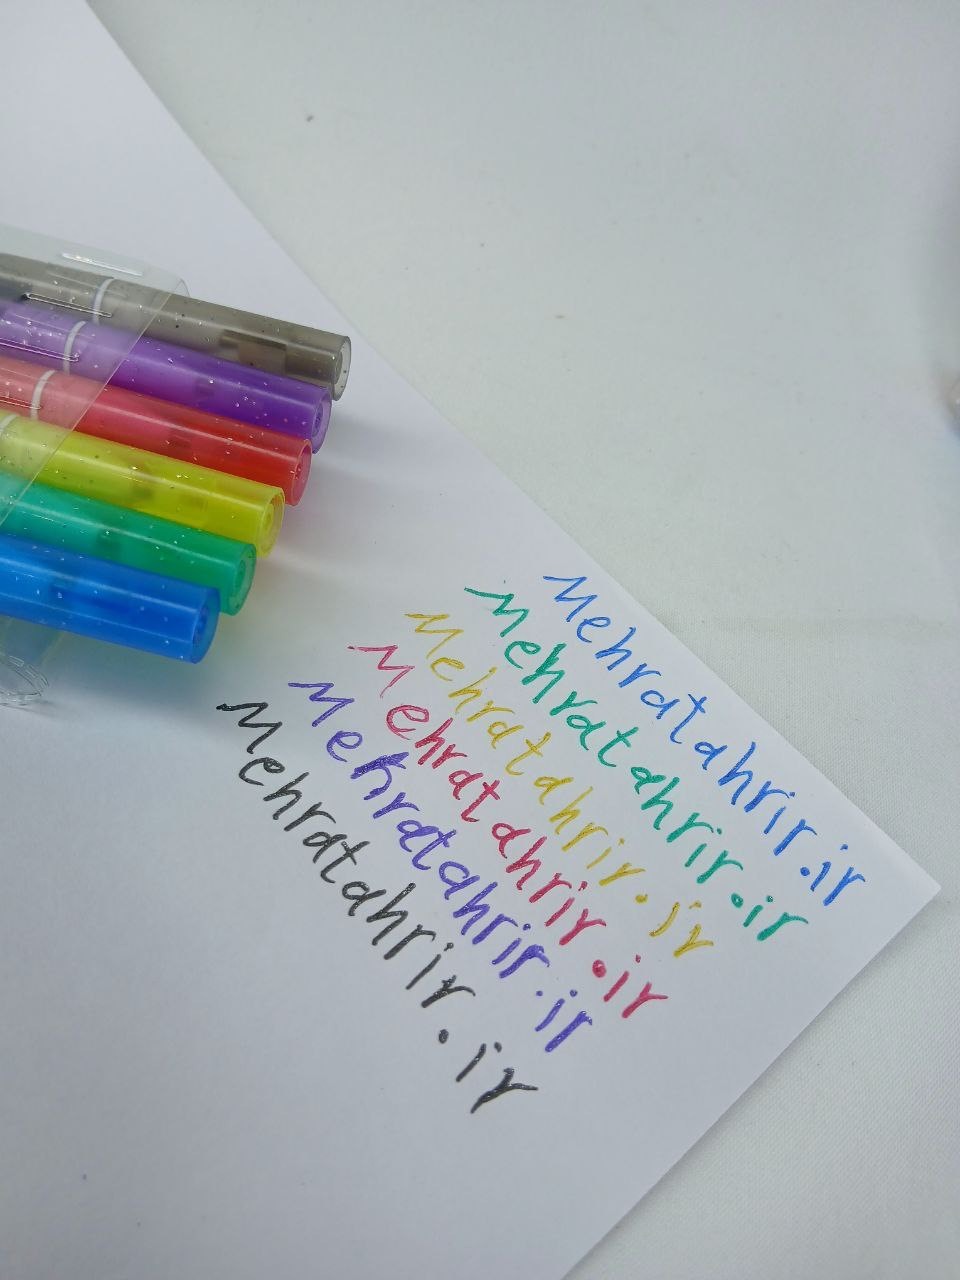 Mehratahrir.ir
Mehratahrir.ir
Mehratahrir.ir
Mehratahrir.ir
Mehratahrir.ir
Mehratahrir.ir